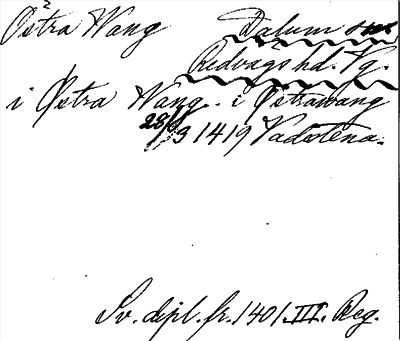 Östra Wang Dalum sn
Redvägs hd. Vg.
i Østra Wang. i Østrawang
28/3 1419 Vadstena.
Sv. dipl. fr. 1401 III. Reg.